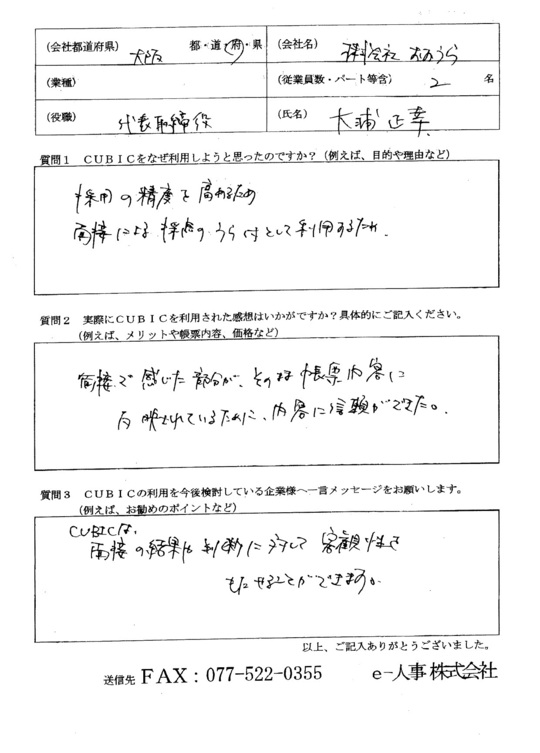 (会社都道府県) 大阪 都・道・府・県
(会社名) 株式会社 おおうら
(業種)
(従業員数・パート等含) 2 名
(役職) 代表取締役
(氏名) 大浦 正幸
質問1 CUBICをなぜ利用しようと思ったのですか？(例えば、目的や理由など)
採用の精度を高めるため
面接による採点のうら付として利用するため.
質問2 実際にCUBICを利用された感想はいかがですか？具体的にご記入ください。
(例えば、メリットや帳票内容、価格など)
面接で感じた部分が、そのまま帳票内容に
反映されているために、内容に信頼ができた。
質問3 CUBICの利用を今後検討している企業様へ一言メッセージをお願いします。
(例えば、お勧めのポイントなど)
CUBICは、
面接の結果や判断に対して客観性を
もたせることができます。
以上、ご記入ありがとうございました。
送信先 FAX：077-522-0355 e-人事株式会社